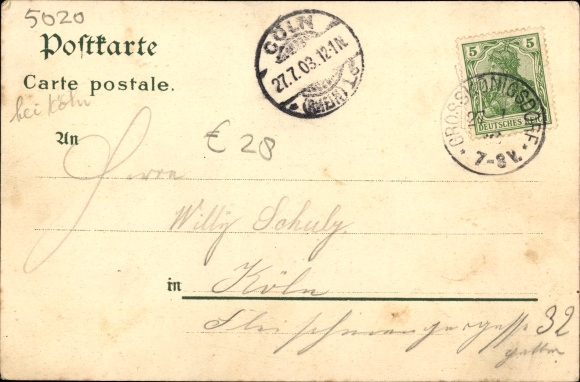 5020
Postkarte
Carte postale.
bei Köln
CÖLN
27.7.03.12-1N.
(RHEIN)
5 5
DEUTSCHES
GROSSKÖNIGSDORF
7-8V.
An
€ 28
Herrn
Willy Schulz
in Köln
32